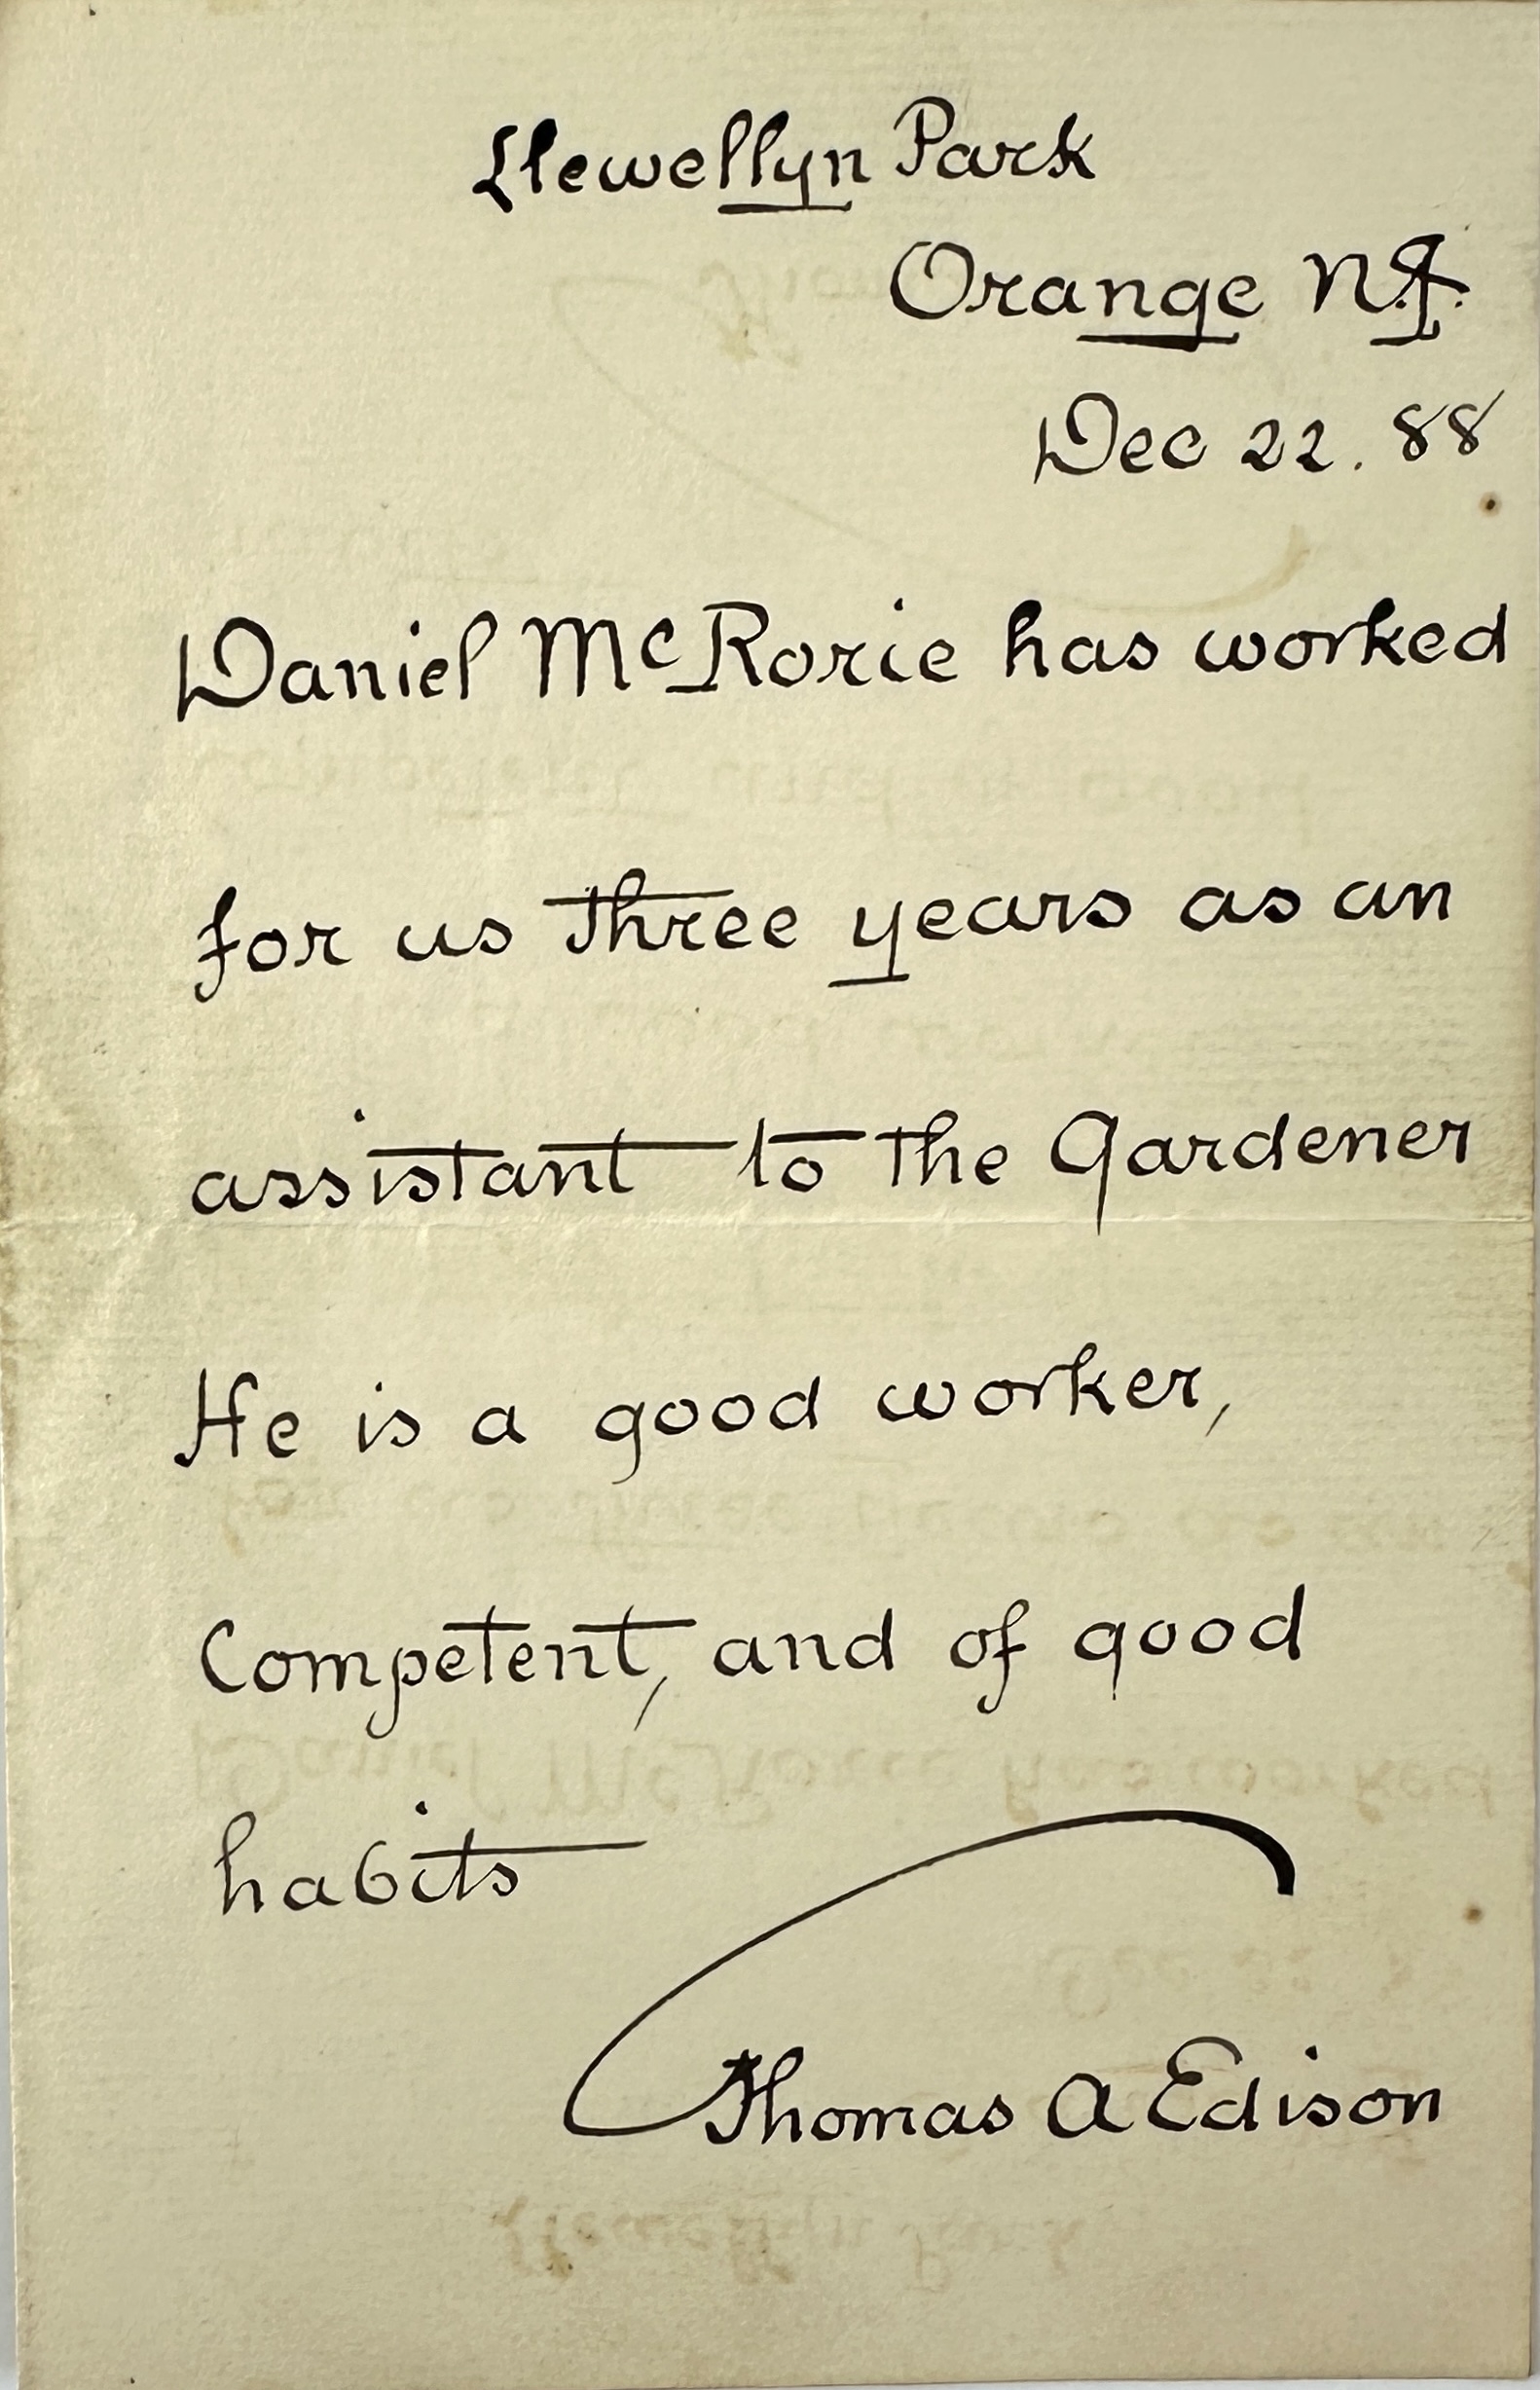 Llewellyn Park
Orange N.J.
Dec 22. 88
Daniel McRorie has worked
for us three years as an
assistant to the Gardener
He is a good worker,
Competent, and of good
habits
Thomas A Edison